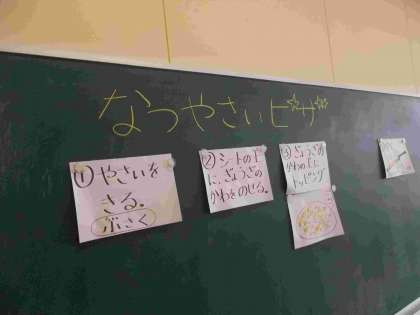 なつやさいピザ
① やさいを
きる。
ぶさく
② シートの上
に、ぎょうざの
かわをのせる。
③ ぎょうざの
かわの上に
トッピング